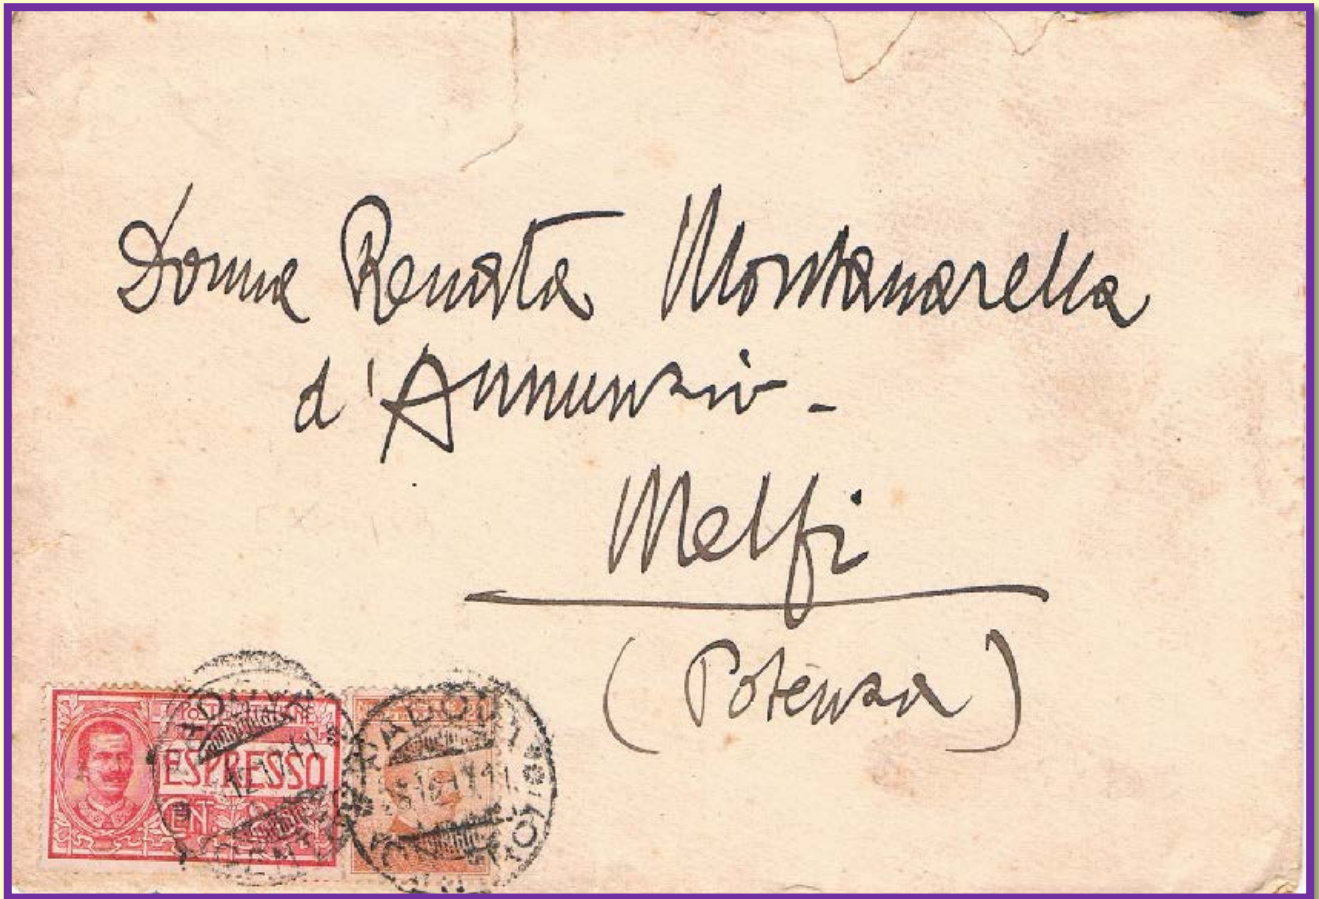 Donna Renata Montanarella
d'Annunzio -
Melfi
(Potenza)
POSTE ITALIANE
ESPRESSO
CEN.
PADOVA